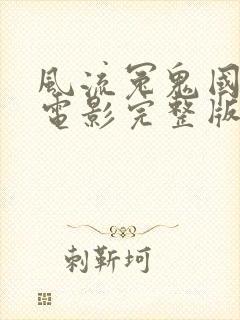 風流冤鬼國
電影完整版
刺靳坷